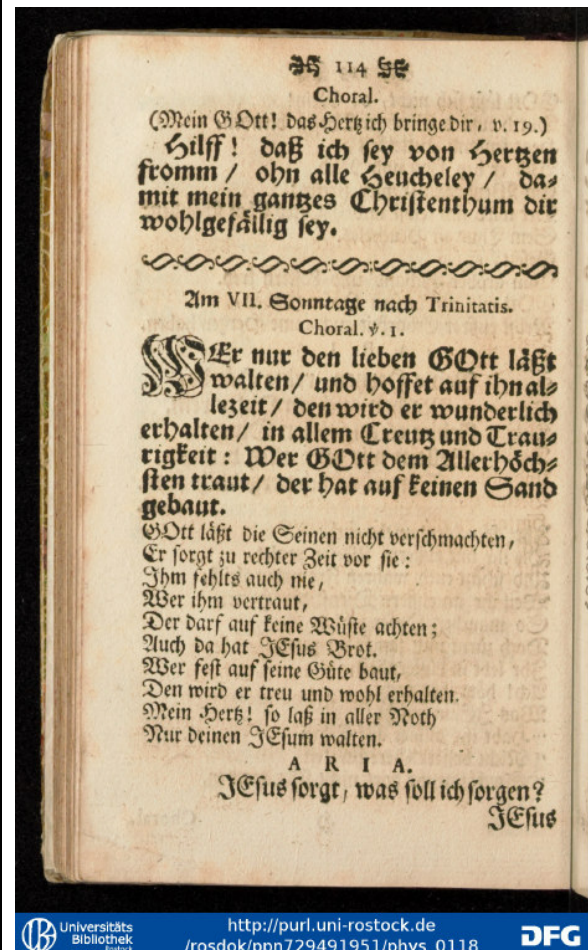 114
Choral.
(Mein GOtt! das Hertz ich bringe dir, v. 19.)
Hilff! daß ich sey von Hertzen
fromm / ohn alle Heucheley / da-
mit mein gantzes Christenthum dir
wohlgefällig sey.
Am VII. Sonntage nach Trinitatis.
Choral. v. 1.
WEr nur den lieben GOtt läßt
walten / und hoffet auf ihn al-
lezeit / den wird er wunderlich
erhalten / in allem Creutz und Trau-
rigkeit: Wer GOtt dem Allerhöch-
sten traut / der hat auf keinen Sand
gebaut.
GOtt läßt die Seinen nicht verschmachten,
Er sorgt zu rechter Zeit vor sie:
Ihm fehlts auch nie,
Wer ihm vertraut,
Der darf auf keine Wüste achten;
Auch da hat JEsus Brot.
Wer fest auf seine Güte baut,
Den wird er treu und wohl erhalten.
Mein Hertz! so laß in aller Noth
Nur deinen JEsum walten.
ARIA.
JEsus sorgt, was soll ich sorgen?
JEsus
Universitäts
Bibliothek
Rostock
http://purl.uni-rostock.de
/rosdok/ppn729491951/phys_0118
DFG